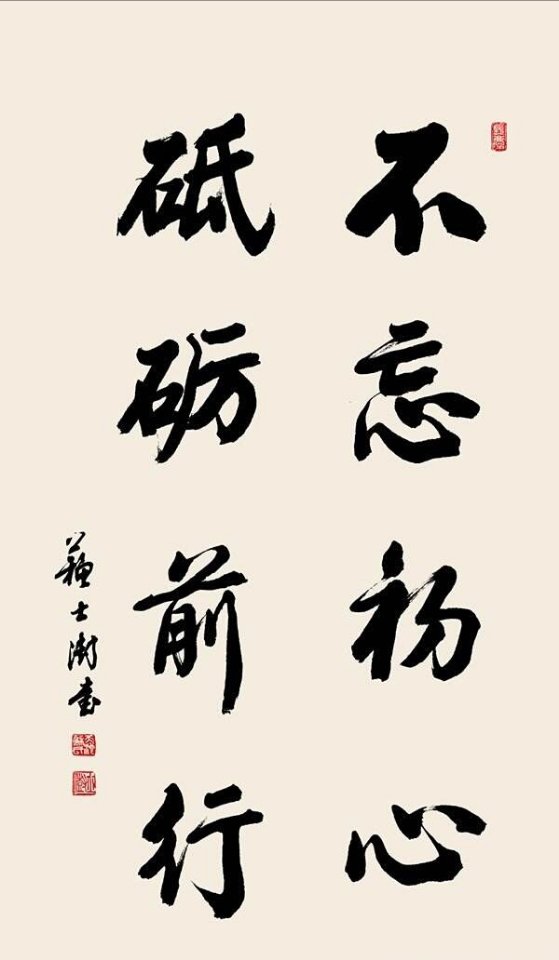 不忘初心
砥砺前行
苏士澍书